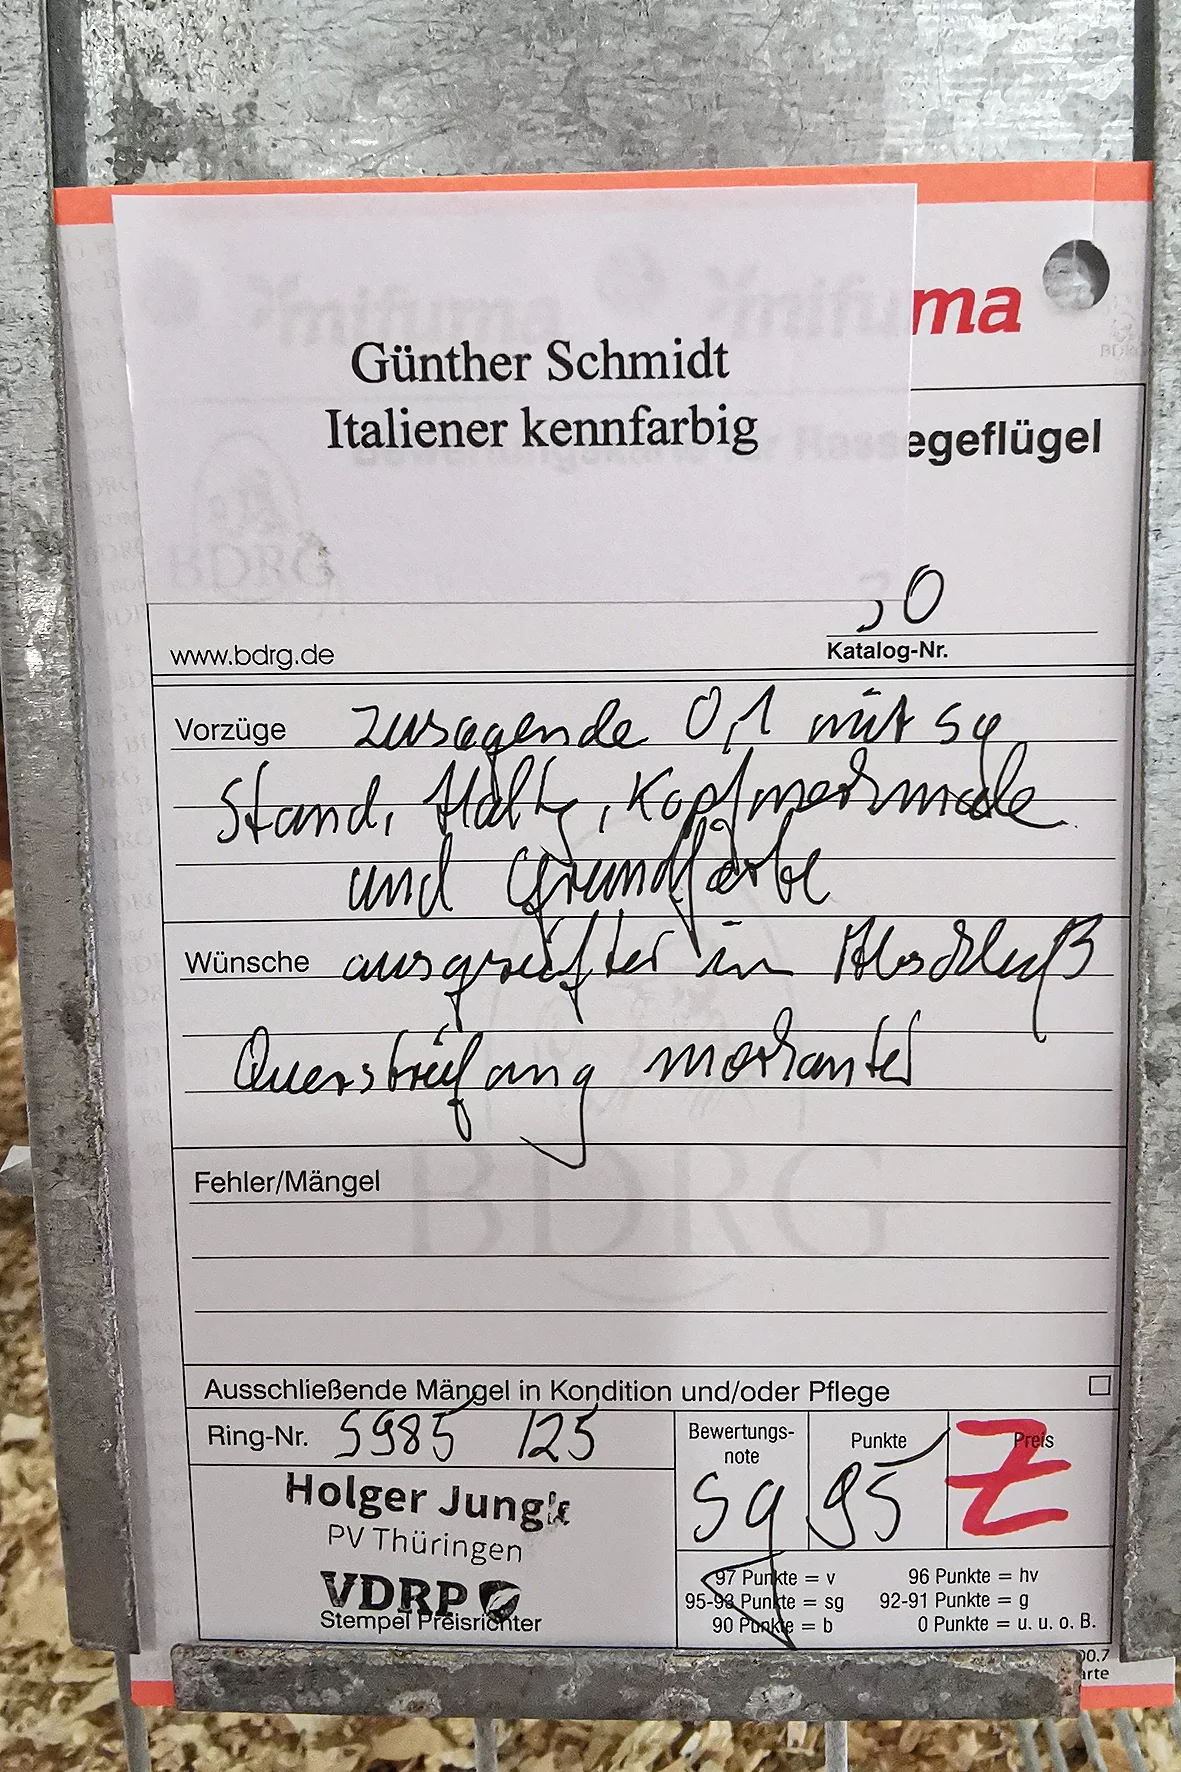 ma
Günther Schmidt
Italiener kennfarbig
egeflügel
30
www.bdrg.de
Katalog-Nr.
Vorzüge zusagende 0,1 mit sg
Stand, Haltg, Kopfmerkmale
und Grundfarbe
Wünsche ausgereifter im Abschluß
Querstreifung markanter
BDRG
Fehler/Mängel
Ausschließende Mängel in Kondition und/oder Pflege
Ring-Nr. S985 125
Bewertungs-
note
Punkte
Preis
sg 95 Z
Holger Jung
PV Thüringen
VDRP
Stempel Preisrichter
97 Punkte = v 96 Punkte = hv
95-93 Punkte = sg 92-91 Punkte = g
90 Punkte = b 0 Punkte = u. u. o. B.
00.7
arte